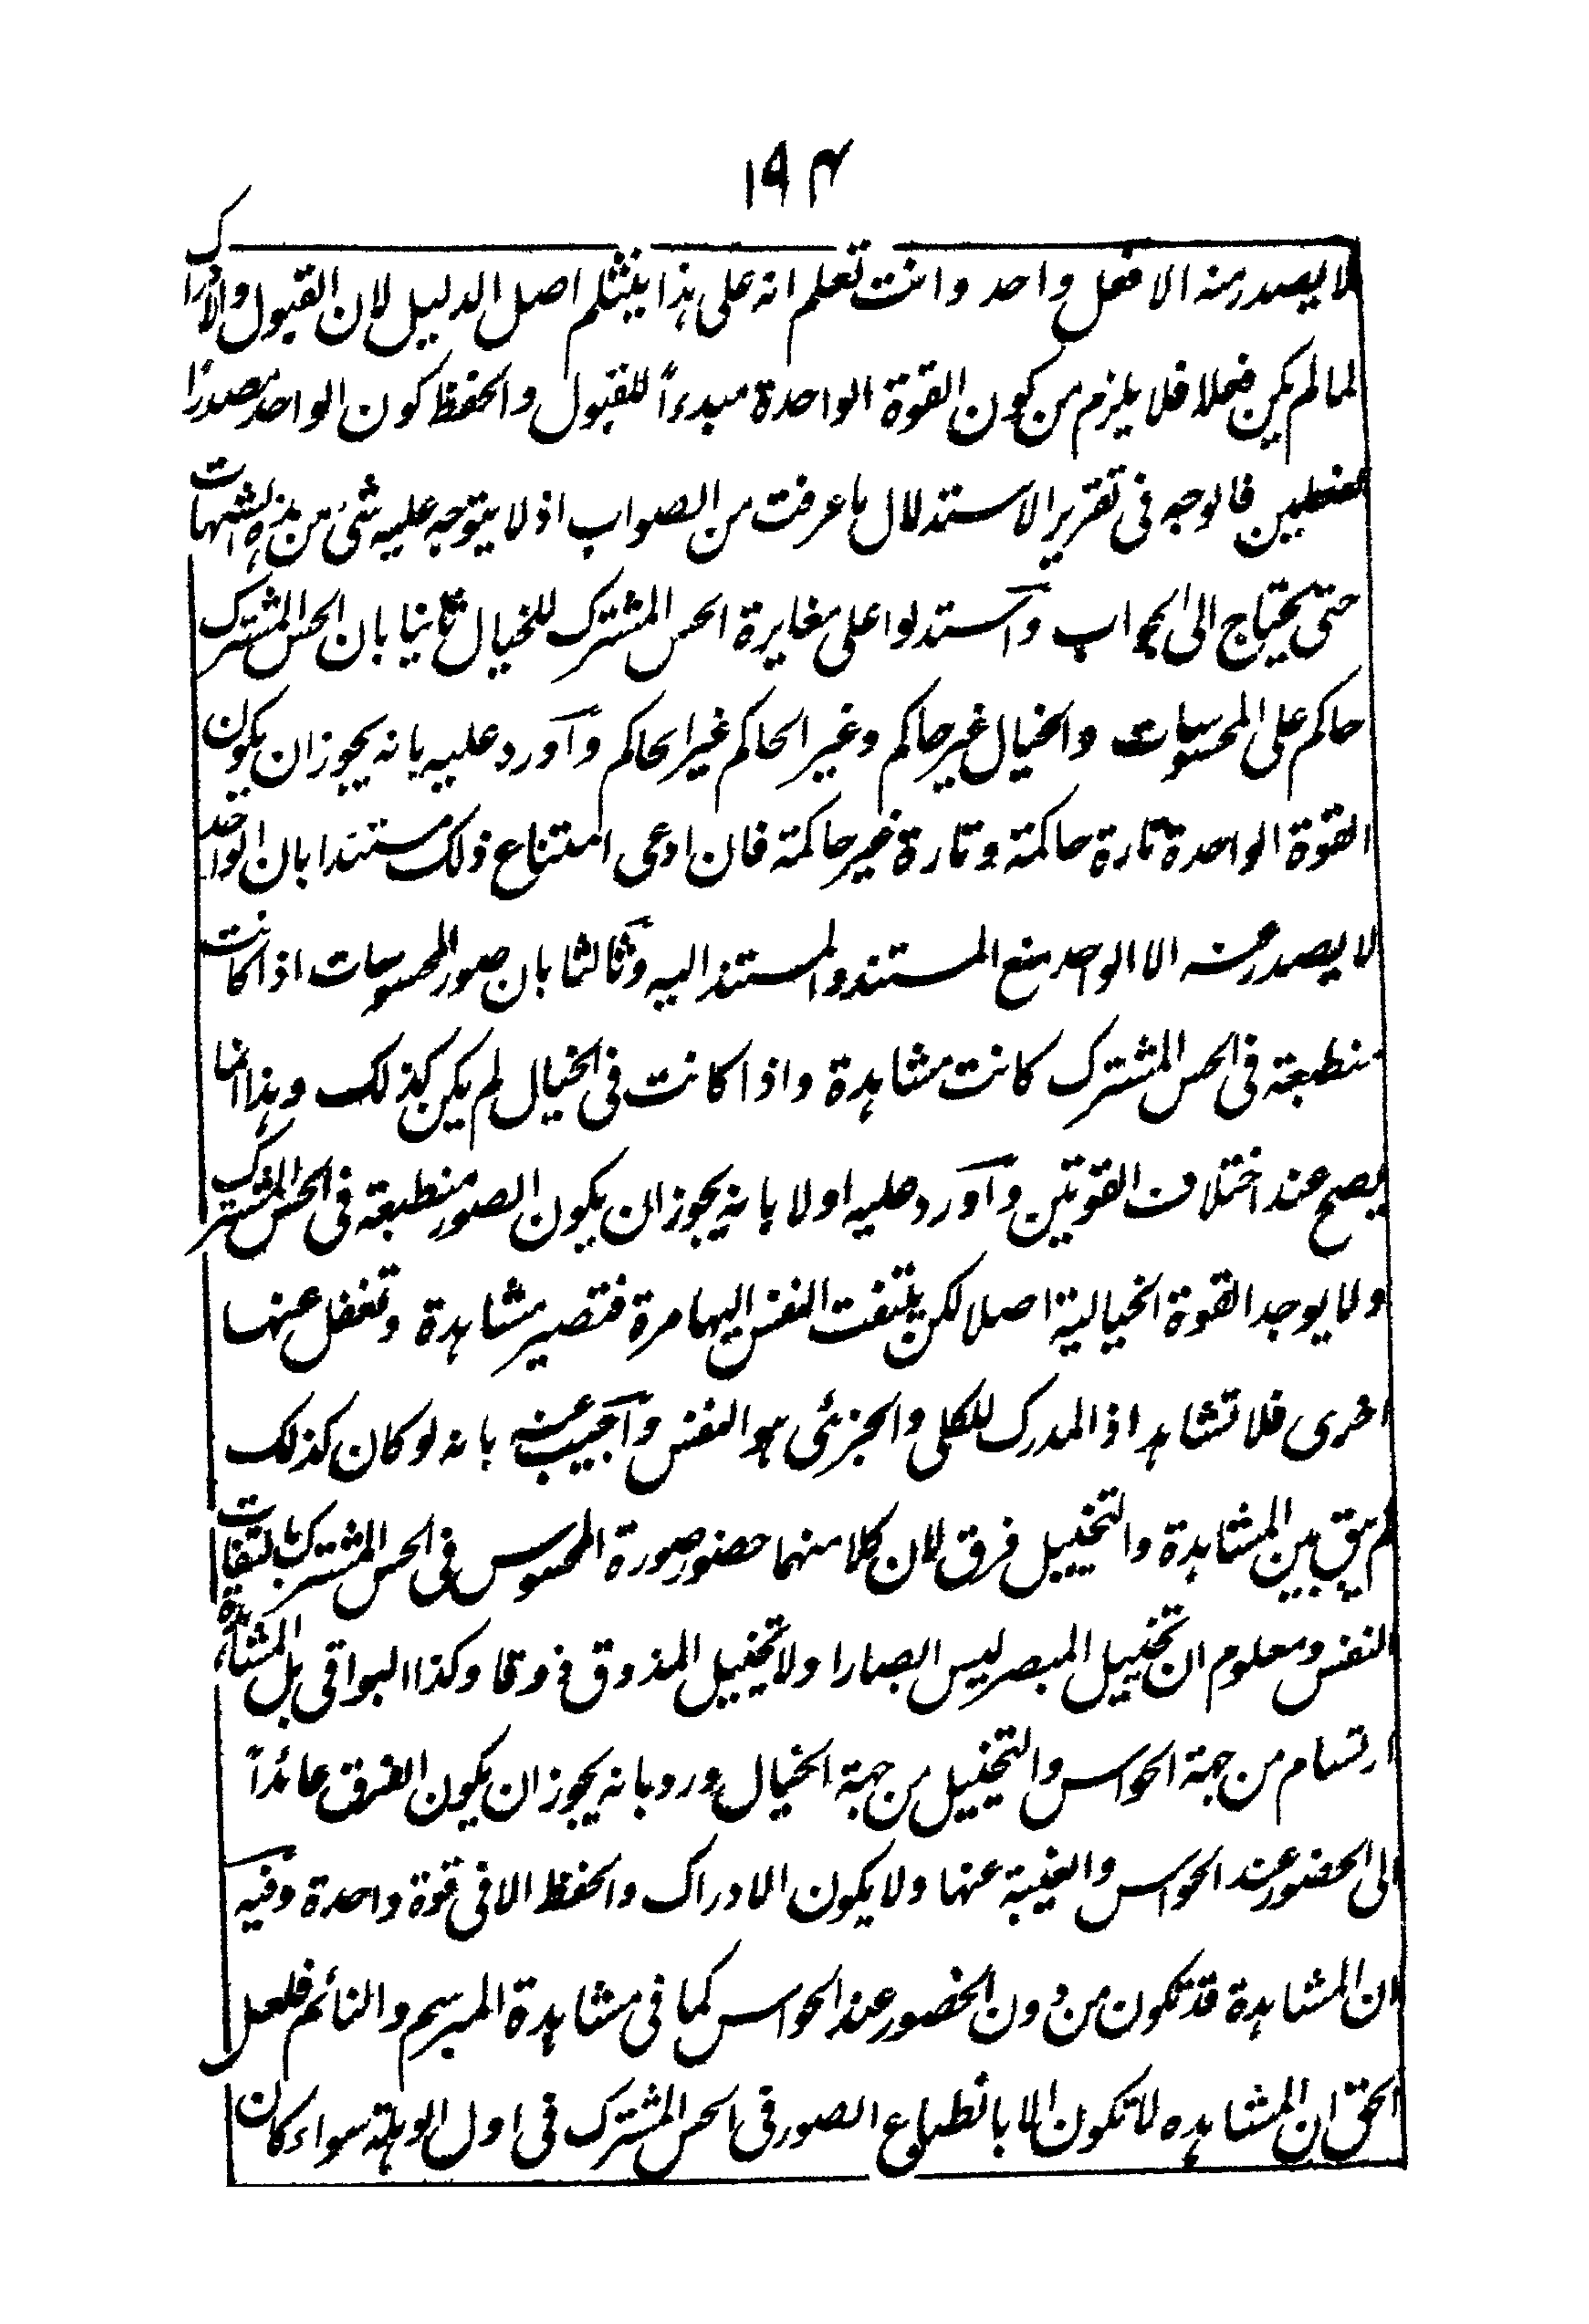 ۱۹۴
لا يصدر منه الا فعل واحد وانت تعلم انه على هذا ينثلم اصل الدليل لان القبول والادراك
لما لم يكن فعلا فلا يلزم من كون القوة الواحدة مبدءاً للقبول والحفظ كون الواحد مصدرًا
لفعلين فالوجه فى تقرير الاستدلال ما عرفت من الصواب اذ لا يتوجه عليه شئ من هذه الشبهات
حتى يحتاج الى الجواب وآستدلوا على مغايرة الحس المشترك للخيال ثانيا بان الحس المشترك
حاكم على المحسوسات والخيال غير حاكم وغير الحاكم غير الحاكم وآورد عليه بانه يجوز ان يكون
القوة الواحدة تارة حاكمة وتارة غير حاكمة فان ادعى امتناع ذلك مستندا بان الواحد
لا يصدر عنه الا الواحد منع المستند والمستند اليه وثالثا بان صور المحسوسات اذا كانت
منطبعة فى الحس المشترك كانت مشاهدة واذا كانت فى الخيال لم يكن كذلك وهذا انما
يصح عند اختلاف القوتين وآورد عليه اولا بانه يجوز ان يكون الصور منطبعة فى الحس المشترك
ولا يوجد القوة الخيالية اصلا لكن يلتفت النفس اليها مرة فتصير مشاهدة وتغفل عنها
اخرى فلا تشاهد اذ المدرك للكلى والجزئى هو النفس وآجيب عنه بانه لو كان كذلك
لم يبق بين المشاهدة والتخييل فرق لان كلا منهما حضور صورة المحسوس فى الحس المشترك بالتفات
النفس ومعلوم ان تخييل المبصر ليس ابصارا ولا تخييل المذوق ذوقا وكذا البواقى بل المشاهدة
ارتسام من جهة الحواس والتخييل من جهة الخيال ورد بانه يجوز ان يكون الفرق عائداً
الى الحضور عند الحواس والغيبة عنها ولا يكون الادراك والحفظ الا فى قوة واحدة وفيه
ان المشاهدة قد تكون من دون الحضور عند الحواس كما فى مشاهدة المبرسم والنائم فلعل
الحق ان المشاهده لا تكون الا بانطباع الصور فى الحس المشترك فى اول الوهلة سواء كان